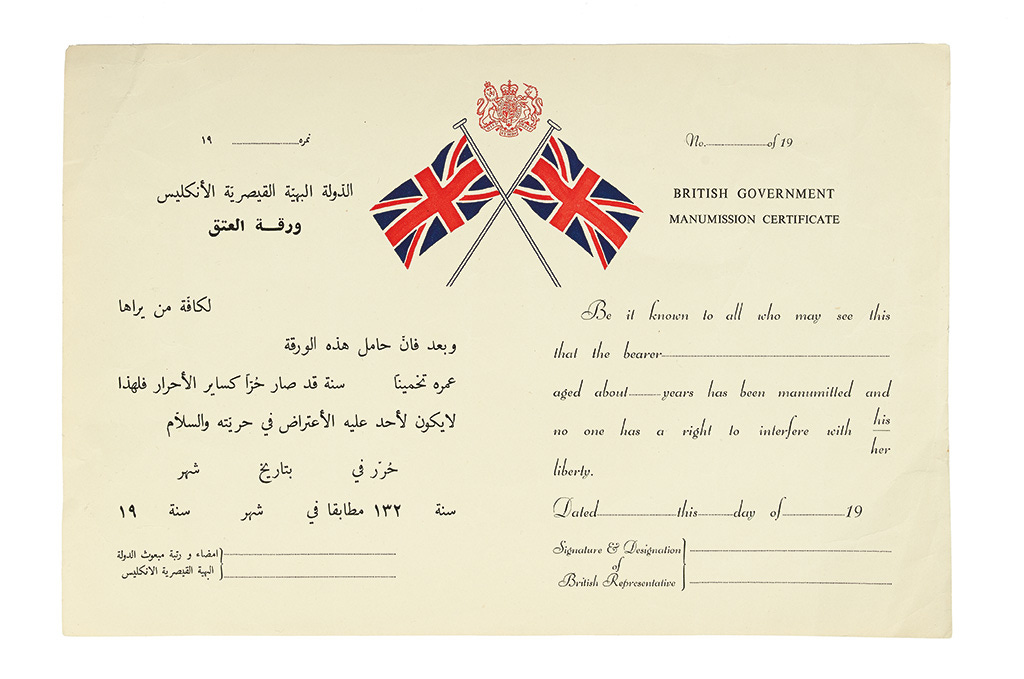 نمره ١٩
الدولة البهيّة القيصريّة الأنكليس
ورقــة العتق
لكافّة من يراها
وبعد فانّ حامل هذه الورقة
عمره تخمينًا سنة قد صار حُرّا كساير الأحرار فلهذا
لايكون لأحد عليه الأعتراض في حريّته والسلام
حُرّر في بتاريخ شهر
سنة ١٣٢ مطابقا في شهر سنة ١٩
امضاء و رتبة مبعوث الدولة
البهية القيصرية الانكليس
No. of 19
BRITISH GOVERNMENT
MANUMISSION CERTIFICATE
Be it known to all who may see this
that the bearer
aged about years has been manumitted and
no one has a right to interfere with his
her
liberty.
Dated this day of 19
Signature & Designation
of
British Representative